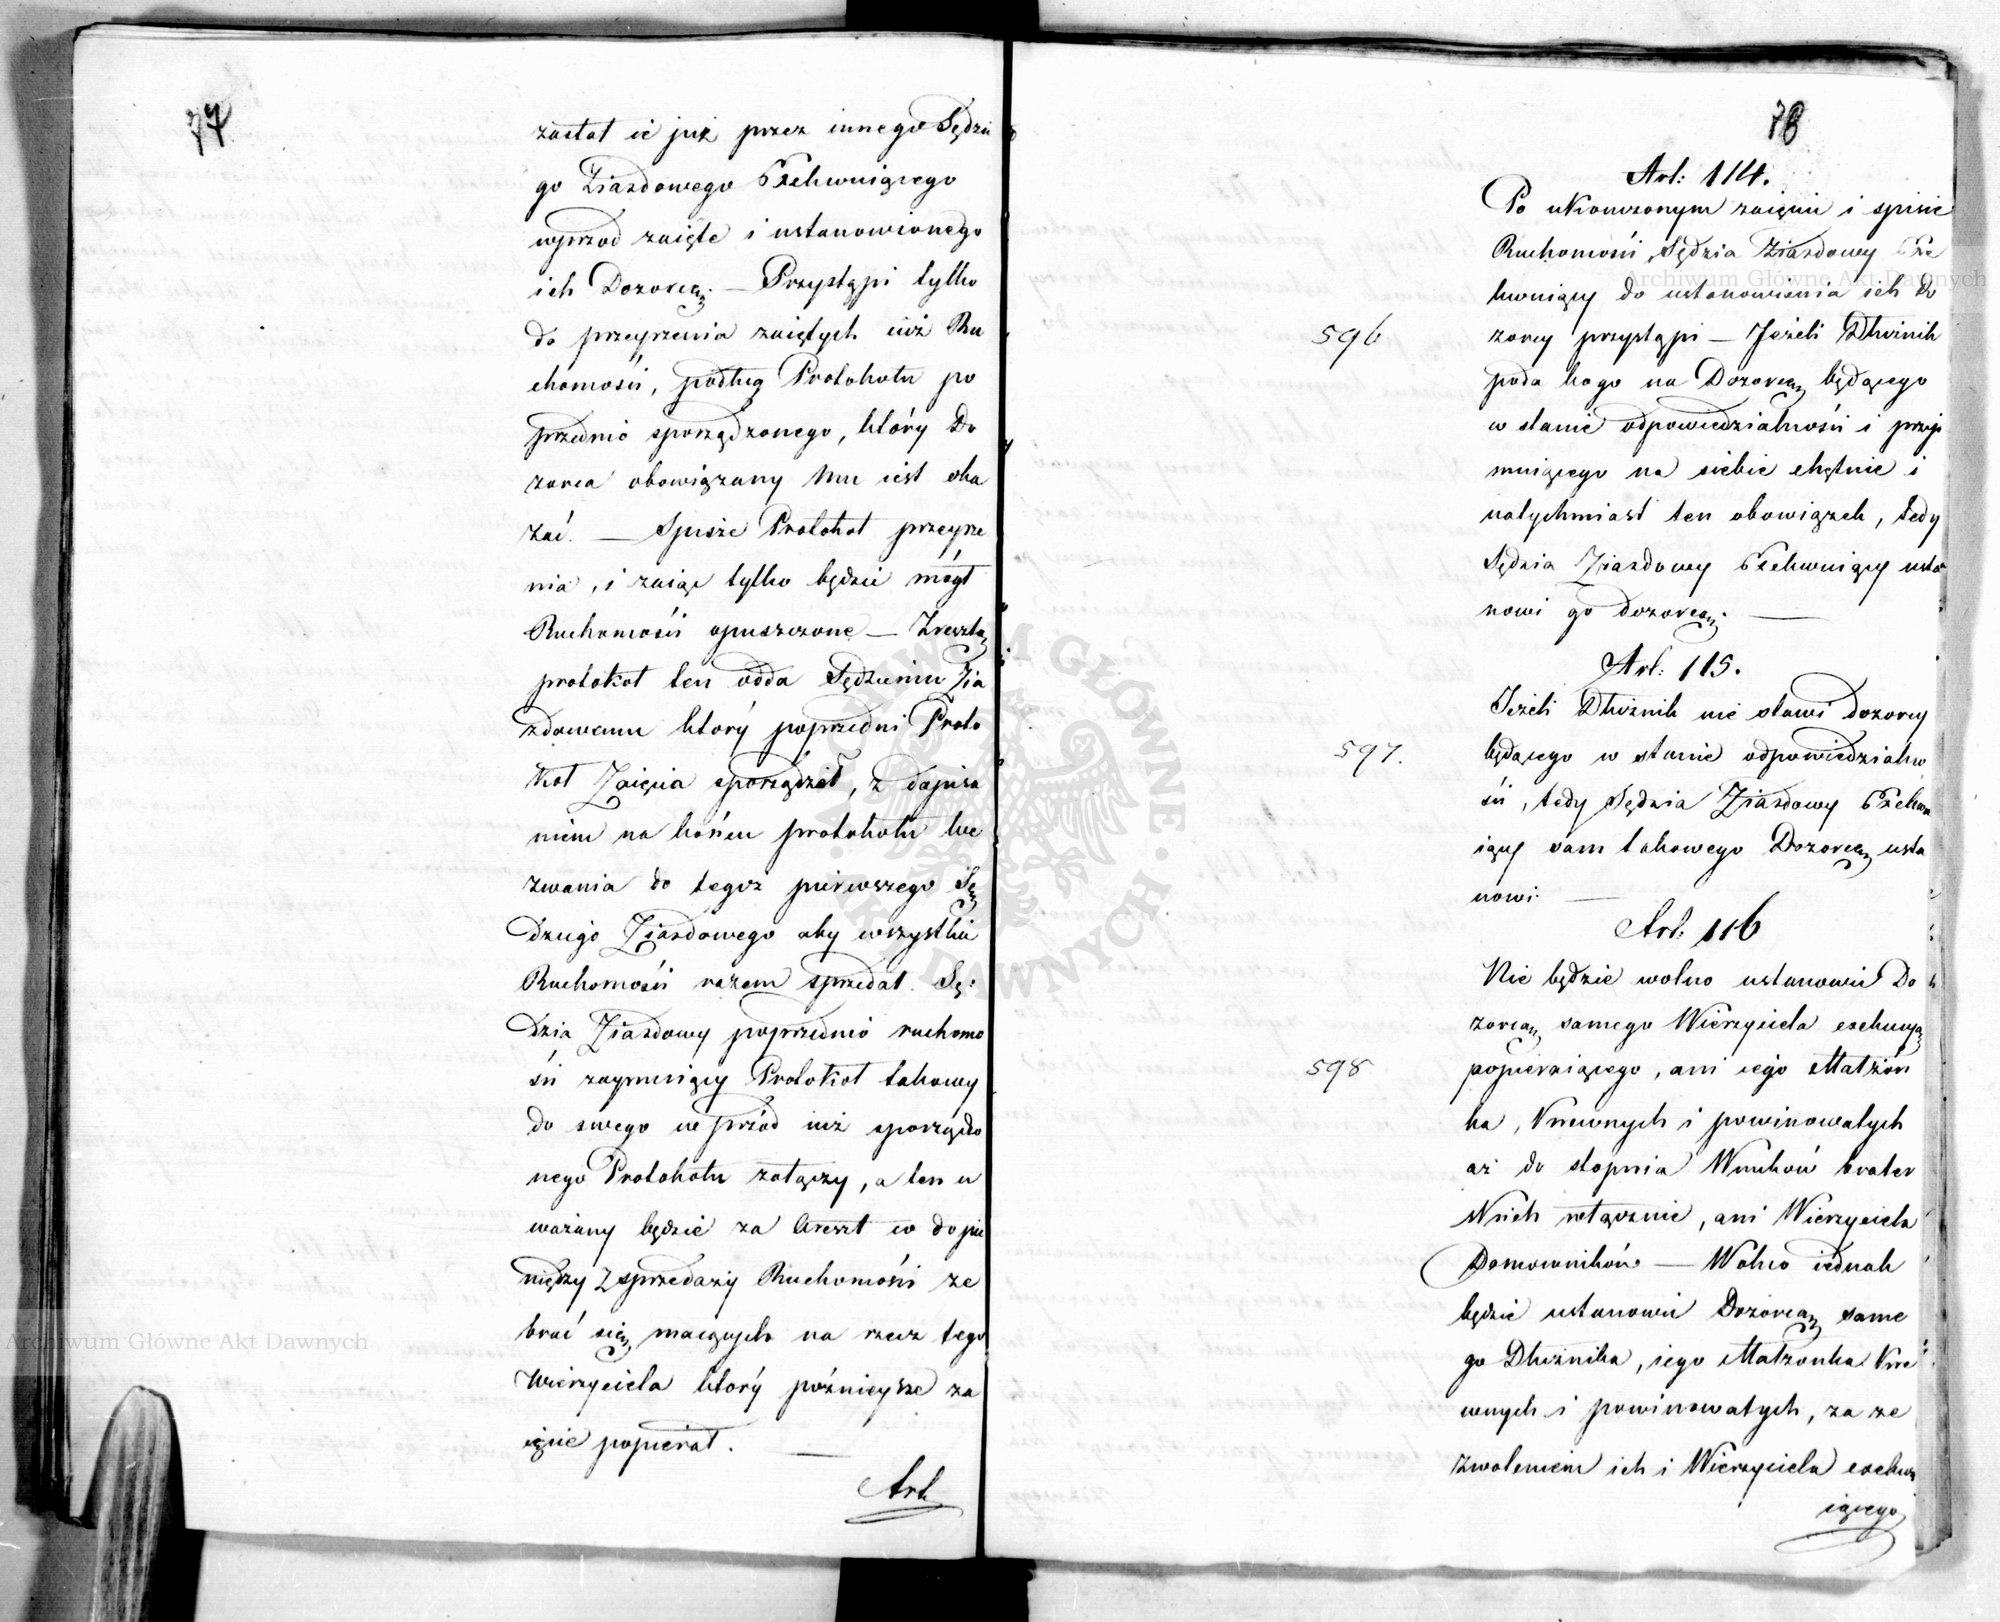 77
zastał ie już przez innego Sędzie
go Ziazdowego Exekwuiącego
wprzod zaięte i ustanowionego
ich Dozorcą. — Przystąpi tylko
do przeyrzenia zaiętych iuż Ru
chomości, podług Protokołu po
przednio sporządzonego, który Do
zorca obowiązany Mu iest oka
zać. — Spisze Protokoł przeyrze
nia, i zaiąć tylko będzie mógł
Ruchomości opuszczone — Zresztą
protokoł ten odda Sędziemu Zia
zdowemu który poprzedni Proto
koł Zaięcia sporządził, z dopisa
niem na końcu protokołu we
zwania do tegoż pierwszego Sę
dziego Ziazdowego aby wszystkie
Ruchomości razem sprzedał. Sę:
dzia Ziazdowy poprzednio ruchomo
ści zaymuiący Protokoł takowy
do swego wprzód iuż sporządzo
nego Protokołu załączy, a ten u
ważany będzie za Areszt co do pie
niędzy z sprzedaży Ruchomości ze
brać się maiących na rzecz tego
Wierzyciela który późnieysze za
ięcie popierał. —
Art.
78
Art: 114.
Po ukończonym zaięciu i spisie
Ruchomości, Sędzia Ziazdowy Exe
kwuiący do ustanowienia ich Do
596
zorcy przystąpi — Jeżeli Dłużnik
poda kogo na Dozorcę będącego
w stanie odpowiedzialności i przyj
muiącego na siebie chętnie i
natychmiast ten obowiązek, tedy
Sędzia Ziazdowy Exekwuiący usta
nowi go dozorcą. —
Art: 115.
Jeżeli Dłużnik nie stawi dozorcy
597.
będącego w stanie odpowiedzialno
ści, tedy Sędzia Ziazdowy Exekwu
iący sam takowego Dozorcę usta
nowi. —
Art: 116
Nie będzie wolno ustanowić Do
zorcą samego Wierzyciela exekucyą
598
popieraiącego, ani iego Małżon
ka, Krewnych i powinowatych
aż do stopnia Wnuków brater
skich włącznie, ani Wierzyciela
Domowników — Wolno iednak
będzie ustanowić Dozorcą same
go Dłużnika, iego Małżonka Kre
wnych i powinowatych, za ze
zwoleniem ich i Wierzyciela exekwu
iącego
Archiwum Główne Akt Dawnych
Archiwum Główne Akt Dawnych
ARCHIWUM GŁÓWNE AKT DAWNYCH